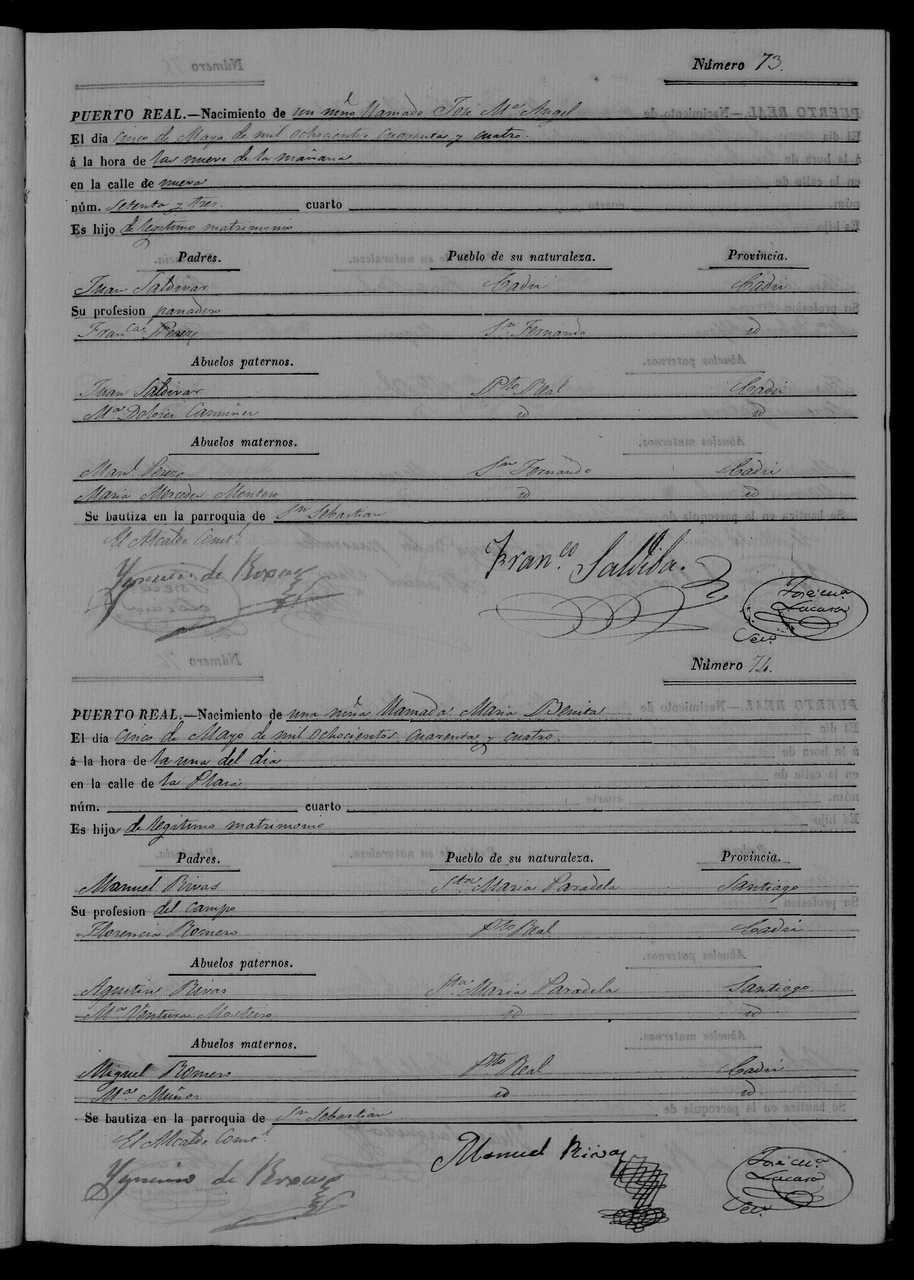 Número 73.
PUERTO REAL.—Nacimiento de un niño llamado José Mª Angel
El dia cinco de Mayo de mil ochocientos cuarenta y cuatro.
á la hora de las nueve de la mañana
en la calle de nueva
núm. setenta y tres. cuarto
Es hijo de legitimo matrimonio
Padres. Pueblo de su naturaleza. Provincia.
Juan Saldivar Cadiz Cadiz
Su profesion panadero
Francca Perez Sn Fernando id
Abuelos paternos.
Juan Saldivar Pto Real Cadiz
Mª Dolores id id
Abuelos maternos.
Manl Perez Sn Fernando Cadiz
Maria Mercedes Montero id id
Se bautiza en la parroquia de Sn Sebastian
El Alcalde Constl
Ygnacio de
Franco Saldiba
José Mª
Lucara
Srio
Número 74.
PUERTO REAL.—Nacimiento de una niña llamada Maria Benita
El dia cinco de Mayo de mil ochocientos cuarenta y cuatro.
á la hora de la una del dia
en la calle de la Plaza
núm. cuarto
Es hija de legitimo matrimonio
Padres. Pueblo de su naturaleza. Provincia.
Manuel Rivas Sta Maria Paradela Santiago
Su profesion del campo
Florencia Romero Pto Real Cadiz
Abuelos paternos.
Agustin Rivas Sta Maria Paradela Santiago
Mª Ventura id id
Abuelos maternos.
Miguel Romero Pto Real Cadiz
Mª Muñoz id id
Se bautiza en la parroquia de Sn Sebastian
El Alcalde Constl
Ygnacio de
Manuel Rivas
José Mª
Lucara
Srio